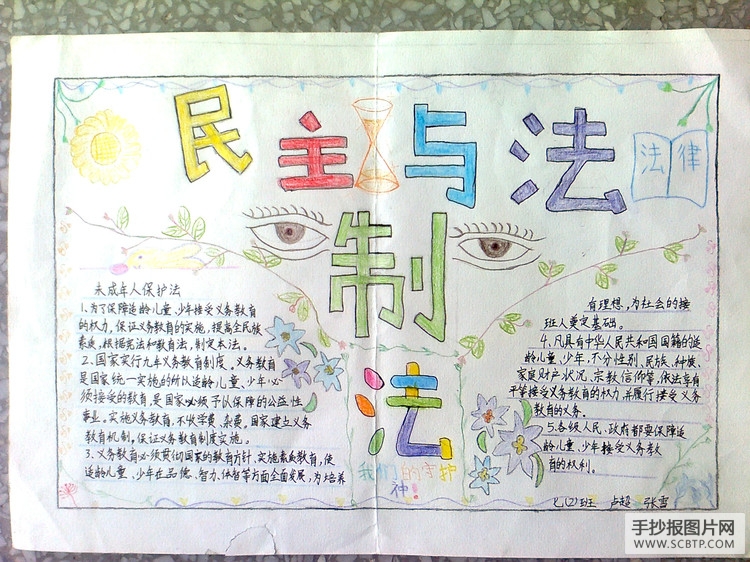 民主与法
制
法律
未成年人保护法
1、为了保障适龄儿童、少年接受义务教育
的权力，保证义务教育的实施，提高全民族
素质，根据宪法和教育法，制定本法。
2、国家实行九年义务教育制度。义务教育
是国家统一实施的所以适龄儿童、少年必
须接受的教育，是国家必须予以保障的公益性
事业。实施义务教育，不收学费、杂费。国家建立义务
教育机制，保证义务教育制度实施。
3、义务教育必须贯彻国家的教育方针，实施素质教育，使
适龄儿童、少年在品德、智力、体智等方面全面发展，为培养
有理想，为社会的接
班人奠定基础。
4、凡具有中华人民共和国国籍的适
龄儿童、少年，不分性别、民族、种族、
家庭财产状况、宗教信仰等，依法享有
平等接受义务教育的权力，并履行接受义务
教育的义务。
5、各级人民政府都要保障适
龄儿童、少年接受义务教
育的权利。
法
我们的守护
神!
七(2)班 卢超 张雪
手抄报图片网
WWW.SCBTP.COM